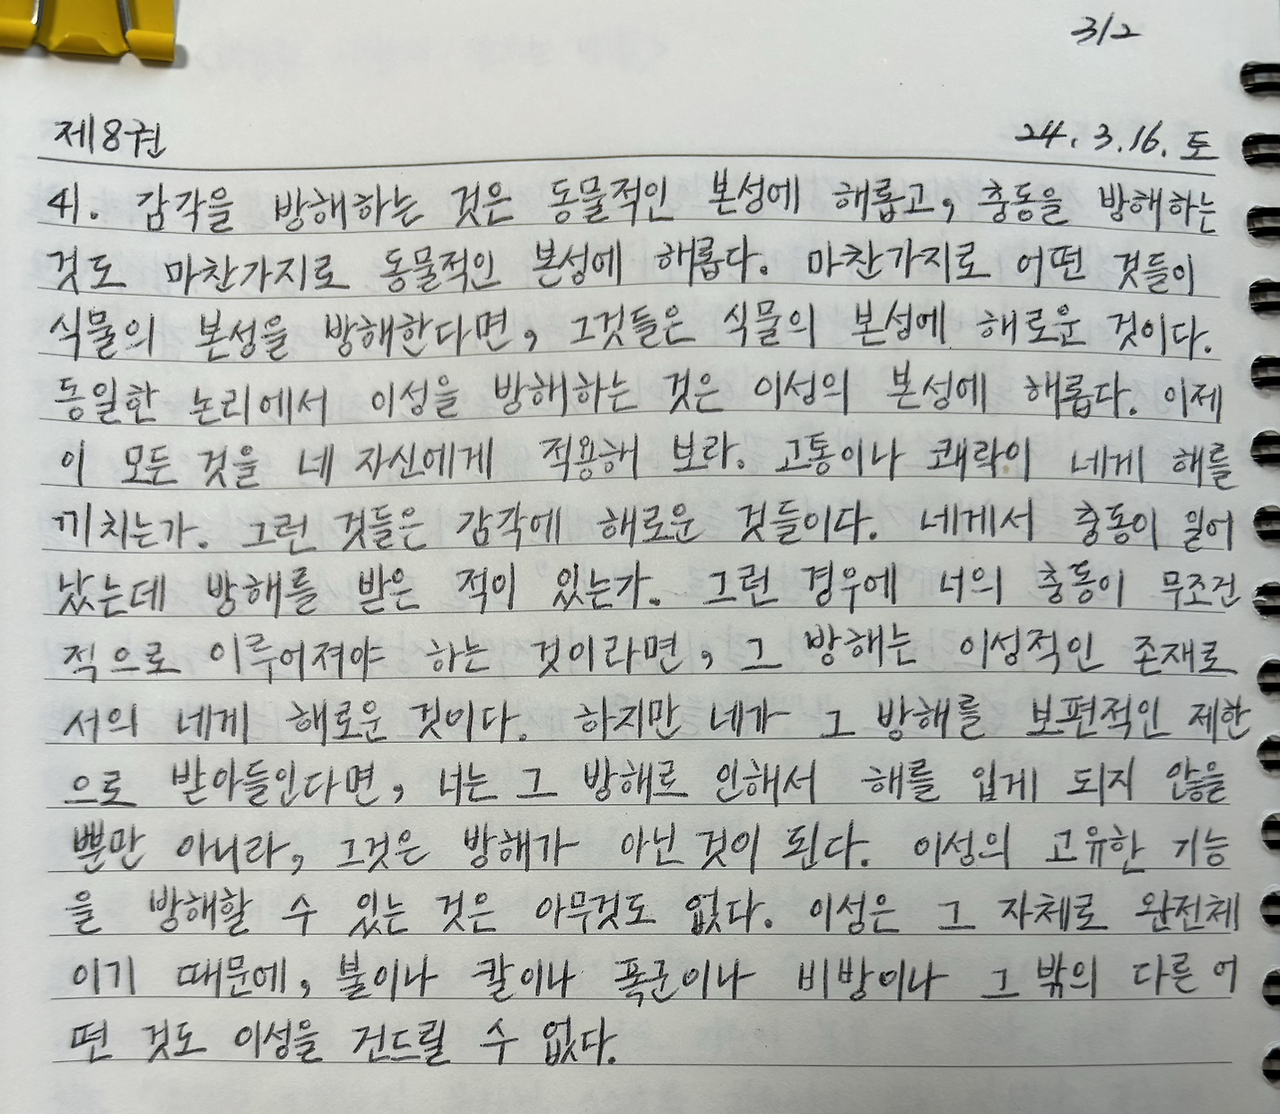 312
제8권 24.3.16.토
41. 감각을 방해하는 것은 동물적인 본성에 해롭고, 충동을 방해하는
것도 마찬가지로 동물적인 본성에 해롭다. 마찬가지로 어떤 것들이
식물의 본성을 방해한다면, 그것들은 식물의 본성에 해로운 것이다.
동일한 논리에서 이성을 방해하는 것은 이성의 본성에 해롭다. 이제
이 모든 것을 네 자신에게 적용해 보라. 고통이나 쾌락이 네게 해를
끼치는가. 그런 것들은 감각에 해로운 것들이다. 네게서 충동이 일어
났는데 방해를 받은 적이 있는가. 그런 경우에 너의 충동이 무조건
적으로 이루어져야 하는 것이라면, 그 방해는 이성적인 존재로
서의 네게 해로운 것이다. 하지만 네가 그 방해를 보편적인 제한
으로 받아들인다면, 너는 그 방해로 인해서 해를 입게 되지 않을
뿐만 아니라, 그것은 방해가 아닌 것이 된다. 이성의 고유한 기능
을 방해할 수 있는 것은 아무것도 없다. 이성은 그 자체로 완전체
이기 때문에, 불이나 칼이나 폭군이나 비방이나 그 밖의 다른 어
떤 것도 이성을 건드릴 수 없다.